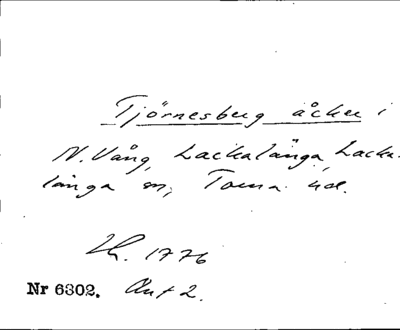 Tjörnesberg åcker i
N. Vång, Lackalänga, Lacka-
länga sn, Torna hd.
1776
Nr 6302. Akt 2.